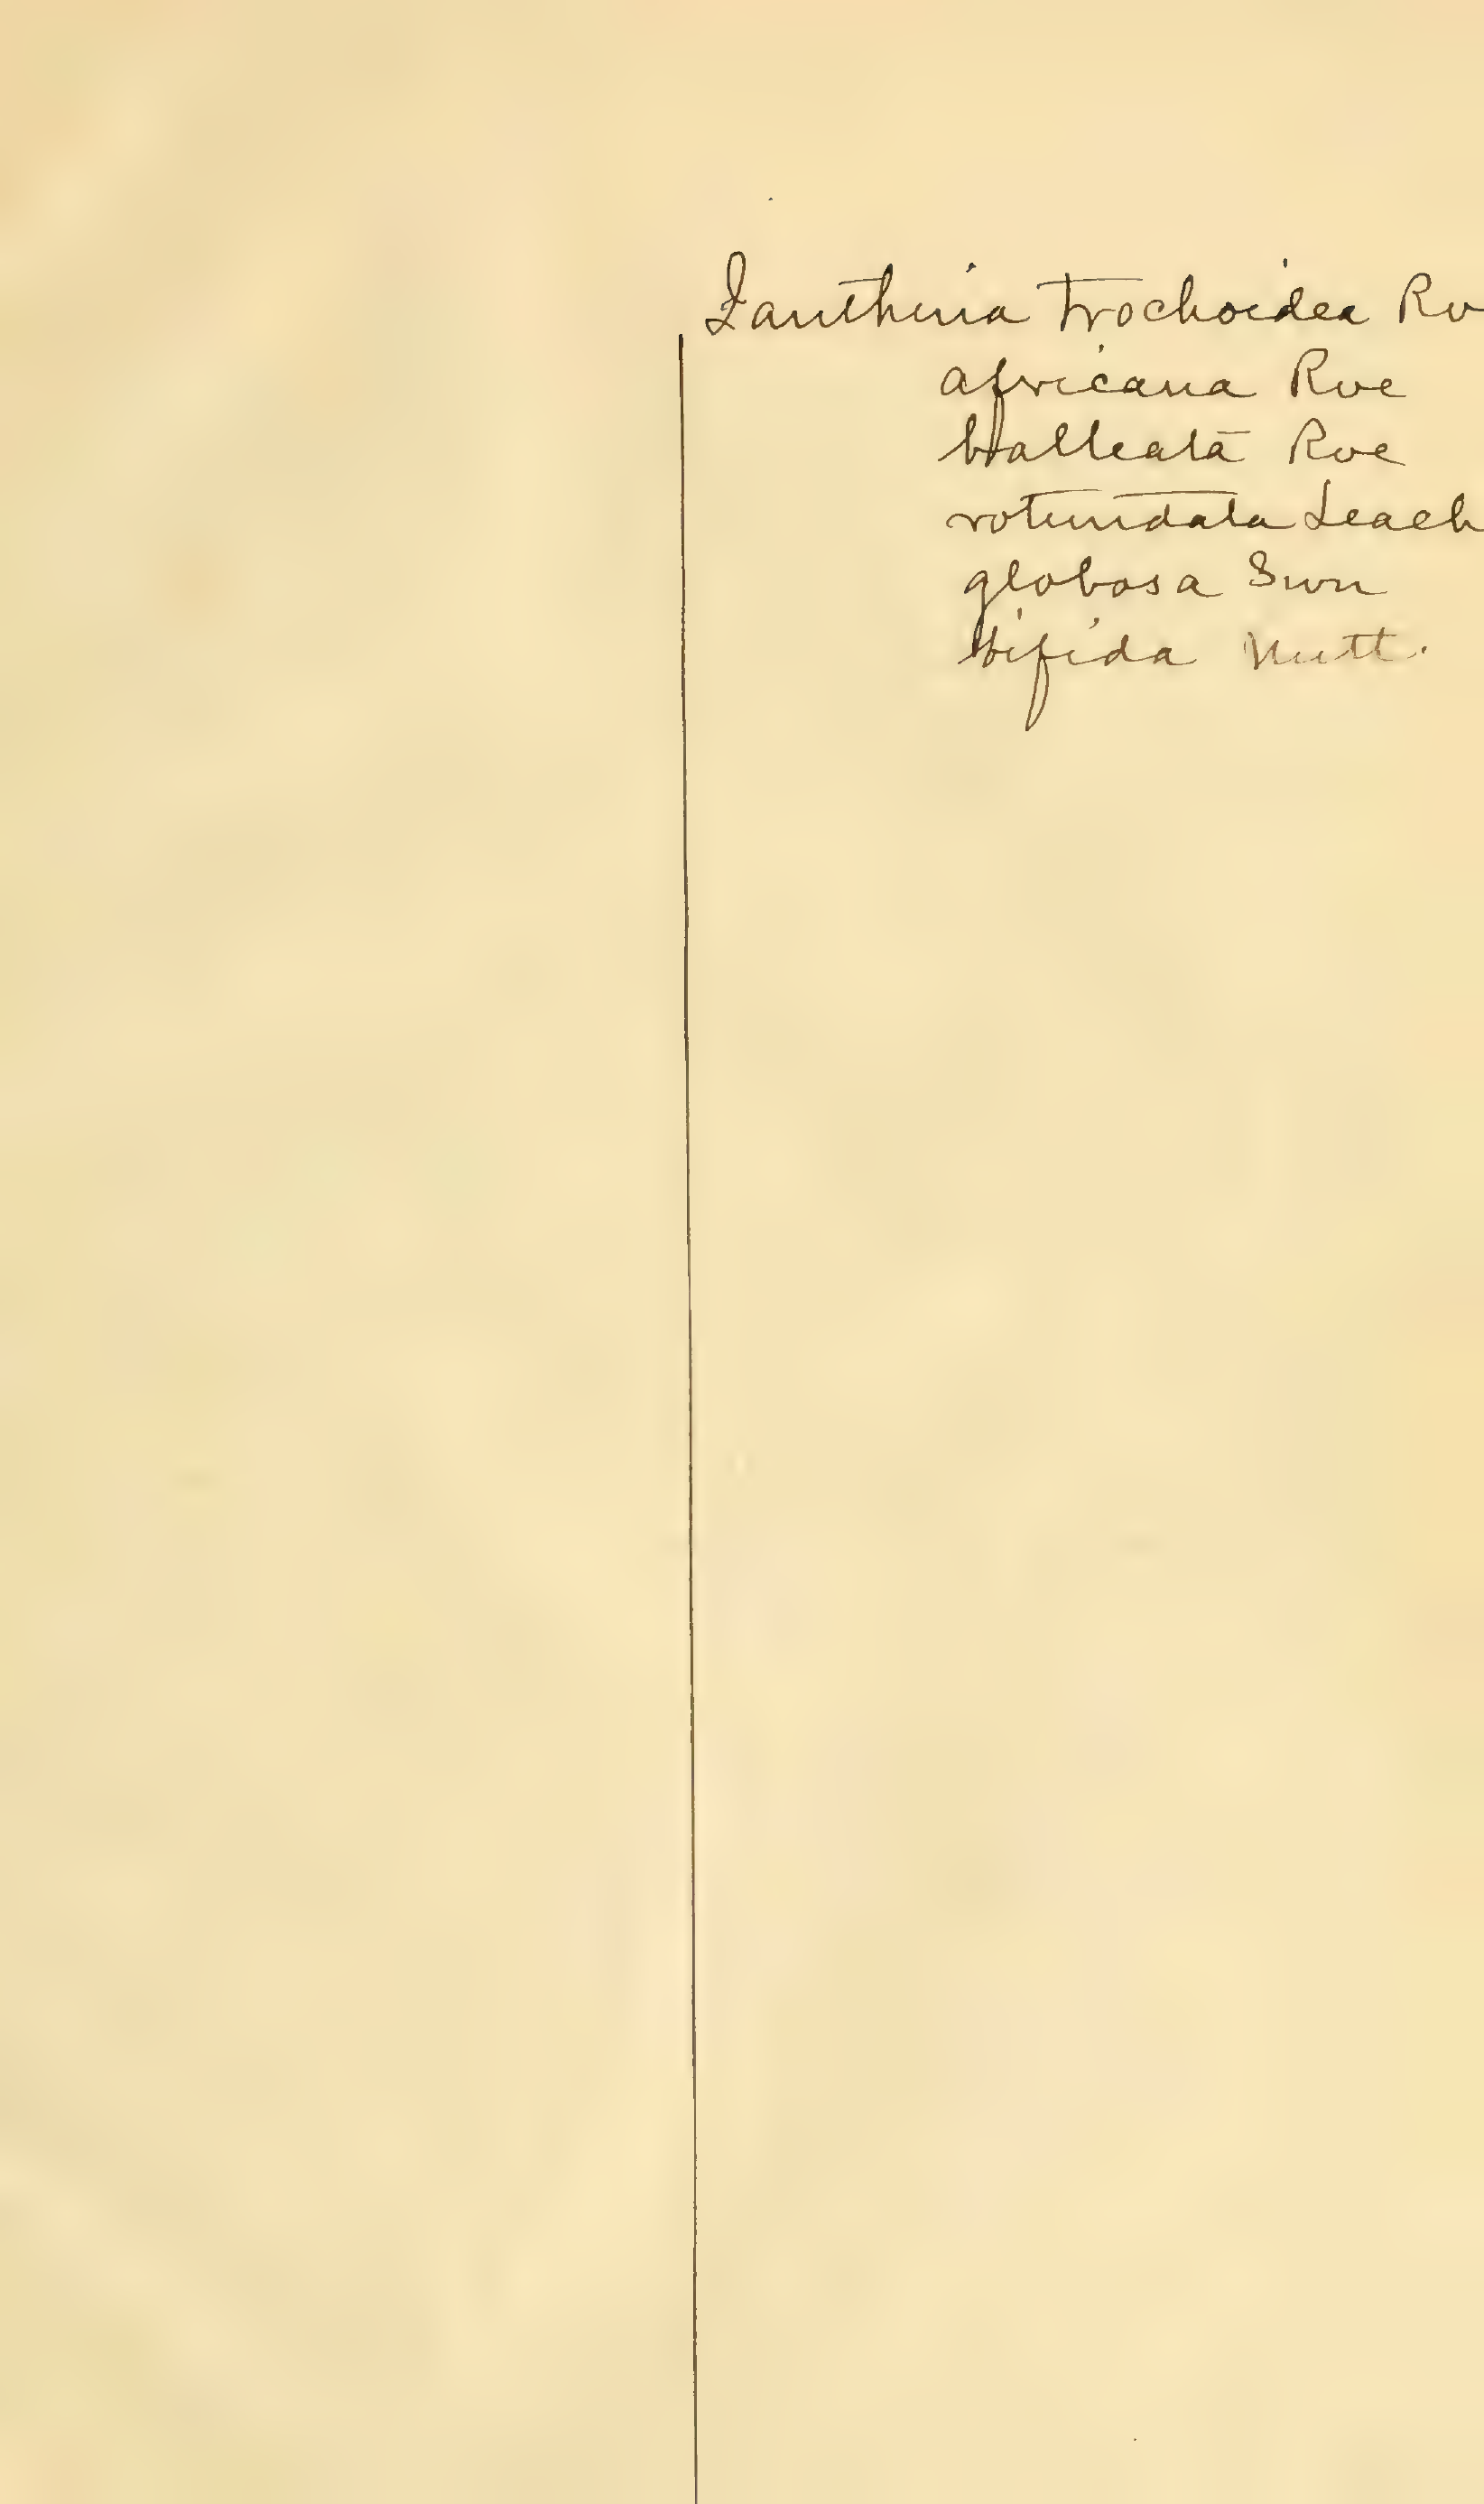 Ianthina trochoidea Rv
africana Rve
balteata Rve
rotundata Leach
globosa Swn
bifida Nutt.